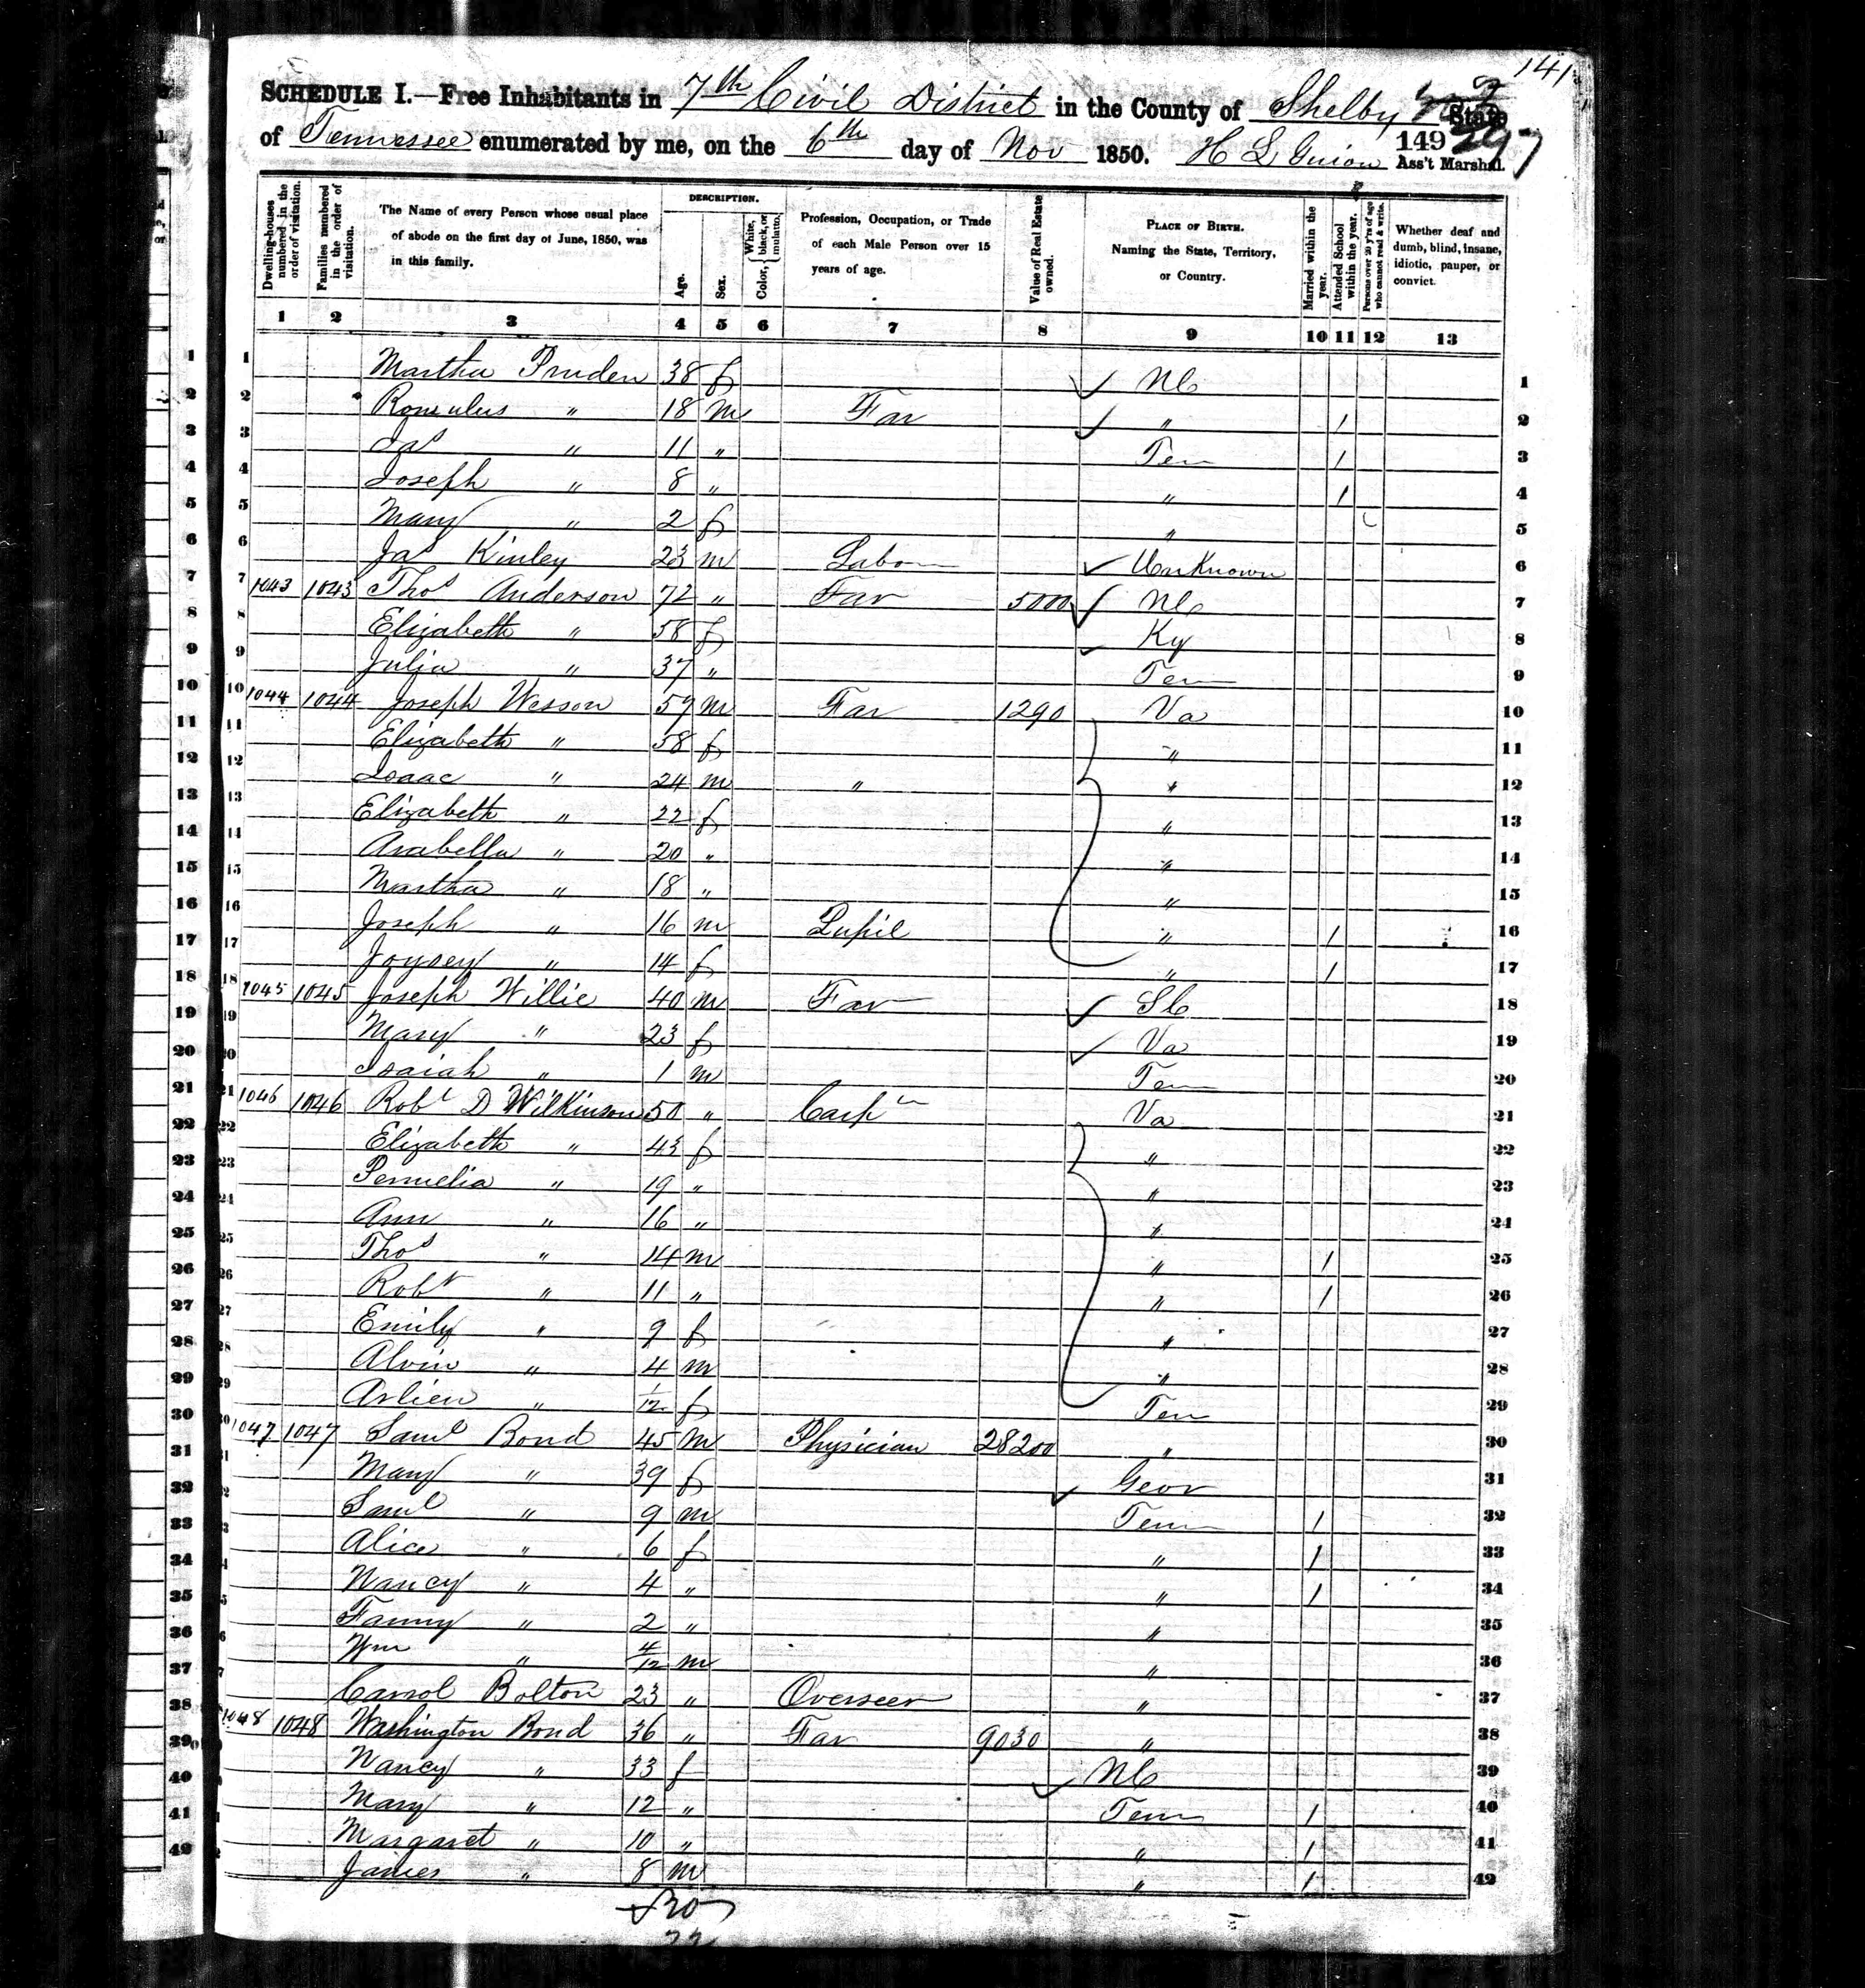 141
SCHEDULE I.—Free Inhabitants in 7th Civil District in the County of Shelby State
of Tennessee enumerated by me, on the 6th day of Nov 1850. H L Guion Ass't Marshal.
149 297
Dwelling-houses numbered in the order of visitation.
Families numbered in the order of visitation.
The Name of every Person whose usual place of abode on the first day of June, 1850, was in this family.
DESCRIPTION.
Age.
Sex.
Color, { White, black, or mulatto.
Profession, Occupation, or Trade of each Male Person over 15 years of age.
Value of Real Estate owned.
PLACE OF BIRTH. Naming the State, Territory, or Country.
Married within the year.
Attended School within the year.
Persons over 20 y'rs of age who cannot read & write.
Whether deaf and dumb, blind, insane, idiotic, pauper, or convict.
1 2 3 4 5 6 7 8 9 10 11 12 13
1 Martha Pruden 38 f ✓ NC 1
2 Romulus " 18 m Far ✓ " 1 2
3 Jas " 11 " Ten 1 3
4 Joseph " 8 " " 1 4
5 Mary " 2 f " 5
6 Jas Kinley 23 m Labor ✓ Unknown 6
7 1043 1043 Thos Anderson 72 " Far 5000 ✓ NC 7
8 Elizabeth " 58 f ✓ Ky 8
9 Julia " 37 " Ten 9
10 1044 1044 Joseph Wesson 59 m Far 1290 Va 10
11 Elizabeth " 58 f " 11
12 Isaac " 24 m " " 12
13 Elizabeth " 22 f " 13
14 Arabella " 20 " " 14
15 Martha " 18 " " 15
16 Joseph " 16 m Pupil " 1 16
17 Joysey " 14 f " 1 17
18 1045 1045 Joseph Willie 40 m Far ✓ SC 18
19 Mary " 23 f ✓ Va 19
20 Isaiah " 1 m Ten 20
21 1046 1046 Robt D Wilkinson 50 " Carpn Va 21
22 Elizabeth " 43 f " 22
23 Permelia " 19 " " 23
24 Ann " 16 " " 24
25 Thos " 14 m " 1 25
26 Robt " 11 " " 1 26
27 Emily " 9 f " 27
28 Alvin " 4 m " 28
29 Arlien " 1/12 f Ten 29
30 1047 1047 Saml Bond 45 m Physician 28200 " 30
31 Mary " 39 f ✓ Geor 31
32 Saml " 9 m Tenn 1 32
33 Alice " 6 f " 1 33
34 Nancy " 4 " " 1 34
35 Fanny " 2 " " 35
36 Wm " 4/12 m " 36
37 Carrol Bolton 23 " Overseer " 37
38 1048 1048 Washington Bond 36 " Far 9030 " 38
39 Nancy " 33 f ✓ NC 39
40 Mary " 12 " Tenn 1 40
41 Margaret " 10 " " 1 41
42 James " 8 m " 1 42